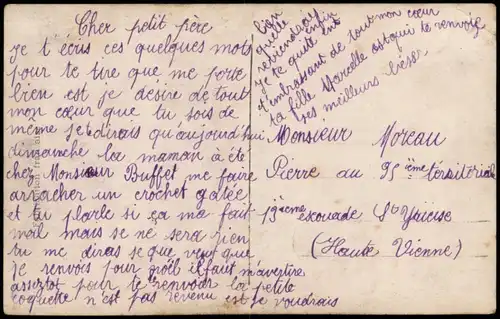 Cher petit père
je t'écris ces quelques mots
pour te tire que me porte
bien est je désire de tout
mon cœur que tu sois de
même je te dirais qu'aujourd'hui
dimanche la maman à été
cher Monsieur Buffet me faire
arracher un crochet gatée
et tu parle si ça ma fait
mail mais se ne sera rien
tu me diras se que veux que
je renvois pour noël il faut m'avertire
assertot pour te renvoir la petite
coquette n'est pas revenu est je voudrais
bien
quelle
reviendrais enfin
je te quitte ent
t'embrassant de tout mon cœur
ta fille Marcelle est qui te renvoie
ses meilleurs
Monsieur Moreau
Pierre au 95 ème territoriale
13 ème escouade St Yrieise
(Haute Vienne)